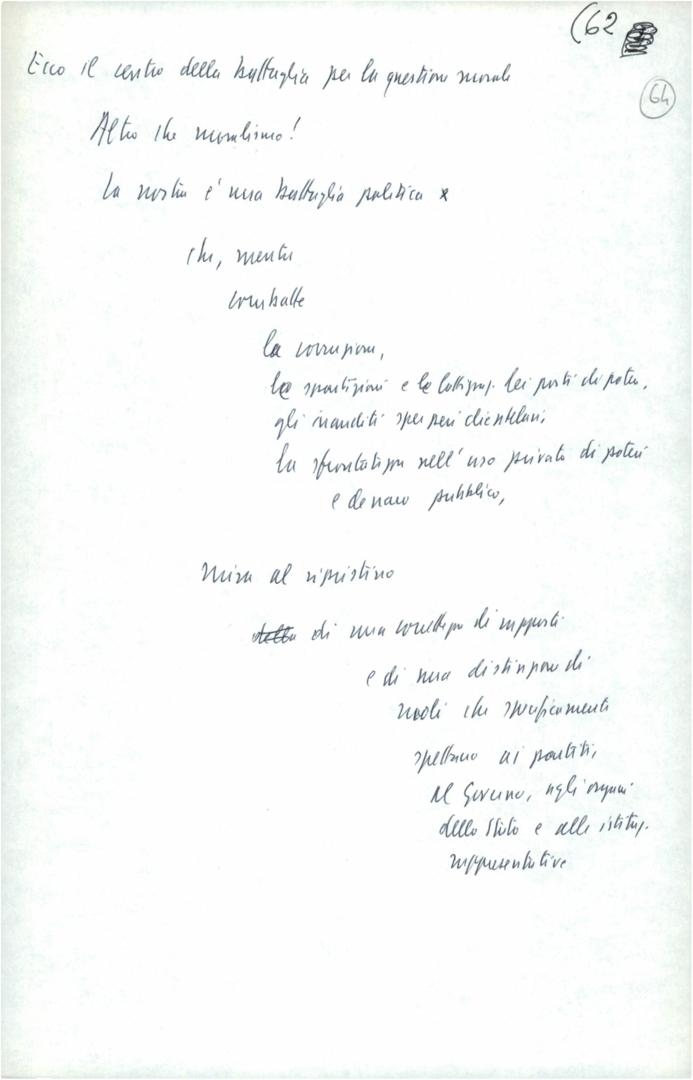 (62
64
Ecco il centro della battaglia per la questione morale
Altro che moralismo!
la nostra e' una battaglia politica x
che, mentre
combatte
la corruzione,
le spartizioni e le lottizzaz. dei posti di potere,
gli inauditi sperperi clientelari,
la sfrontatezza nell'uso privato di poteri
e denaro pubblico,
mira al ripristino
di una correttezza di rapporti
e di una distinzione di
ruoli che specificamente
spettano ai partiti,
al Governo, agli organi
dello Stato e alle istituz.
rappresentative